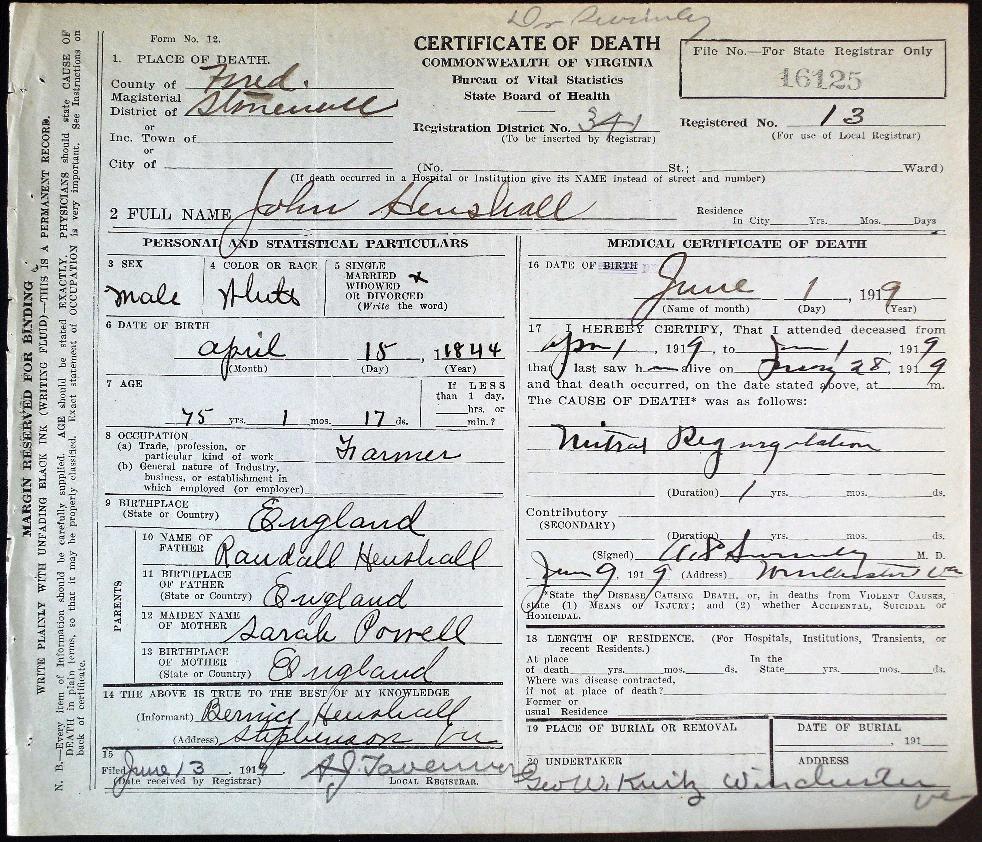 Dr Swimley
Form No. 12.
CERTIFICATE OF DEATH
COMMONWEALTH OF VIRGINIA
Bureau of Vital Statistics
State Board of Health
File No.—For State Registrar Only
16125
1. PLACE OF DEATH.
County of Fred.
Magisterial
District of Stonewall
or
Inc. Town of
or
City of
Registration District No. 341
(To be inserted by Registrar)
Registered No. 13
(For use of Local Registrar)
(No. St.; Ward)
(If death occurred in a Hospital or Institution give its NAME instead of street and number)
2 FULL NAME John Henshall
Residence
In City Yrs. Mos. Days
PERSONAL AND STATISTICAL PARTICULARS
3 SEX
male
4 COLOR OR RACE
White
5 SINGLE
MARRIED x
WIDOWED
OR DIVORCED
(Write the word)
6 DATE OF BIRTH
april 15, 1844
(Month) (Day) (Year)
7 AGE
75 yrs. 1 mos. 17 ds.
If LESS
than 1 day,
hrs. or
min.?
8 OCCUPATION
(a) Trade, profession, or
particular kind of work Farmer
(b) General nature of Industry,
business, or establishment in
which employed (or employer)
9 BIRTHPLACE
(State or Country) England
PARENTS
10 NAME OF
FATHER Randall Henshall
11 BIRTHPLACE
OF FATHER
(State or Country) England
12 MAIDEN NAME
OF MOTHER Sarah Powell
13 BIRTHPLACE
OF MOTHER
(State or Country) England
14 THE ABOVE IS TRUE TO THE BEST OF MY KNOWLEDGE
(Informant) Bernice Henshall
(Address) Stephenson Va
15
Filed June 13, 1919 A.J. Tavenner
(Date received by Registrar) LOCAL REGISTRAR.
MEDICAL CERTIFICATE OF DEATH
16 DATE OF BIRTH
June 1, 1919
(Name of month) (Day) (Year)
17 I HEREBY CERTIFY, That I attended deceased from
Apr 1, 1919, to June 1 1919
that I last saw him alive on 28, 1919
and that death occurred, on the date stated above, at m.
The CAUSE OF DEATH* was as follows:
Mitral Regurgitation
(Duration) 1 yrs. mos. ds.
Contributory
(SECONDARY)
(Duration) yrs. mos. ds.
(Signed) Swimley M. D.
June 9, 1919 (Address) Winchester Va
*State the DISEASE CAUSING DEATH, or, in deaths from VIOLENT CAUSES,
state (1) MEANS OF INJURY; and (2) whether ACCIDENTAL, SUICIDAL or
HOMICIDAL.
18 LENGTH OF RESIDENCE. (For Hospitals, Institutions, Transients, or
recent Residents.)
At place In the
of death yrs. mos. ds. State yrs. mos. ds.
Where was disease contracted,
if not at place of death?
Former or
usual Residence
19 PLACE OF BURIAL OR REMOVAL
DATE OF BURIAL
, 191
20 UNDERTAKER
ADDRESS
Geo W. Kurtz Winchester
Va
MARGIN RESERVED FOR BINDING
WRITE PLAINLY WITH UNFADING BLACK INK (WRITING FLUID)—THIS IS A PERMANENT RECORD.
N. B.—Every item of Information should be carefully supplied. AGE should be stated EXACTLY. PHYSICIANS should state CAUSE OF
DEATH in plain terms, so that it may be properly classified. Exact statement of OCCUPATION is very important. See Instructions on
back of certificate.